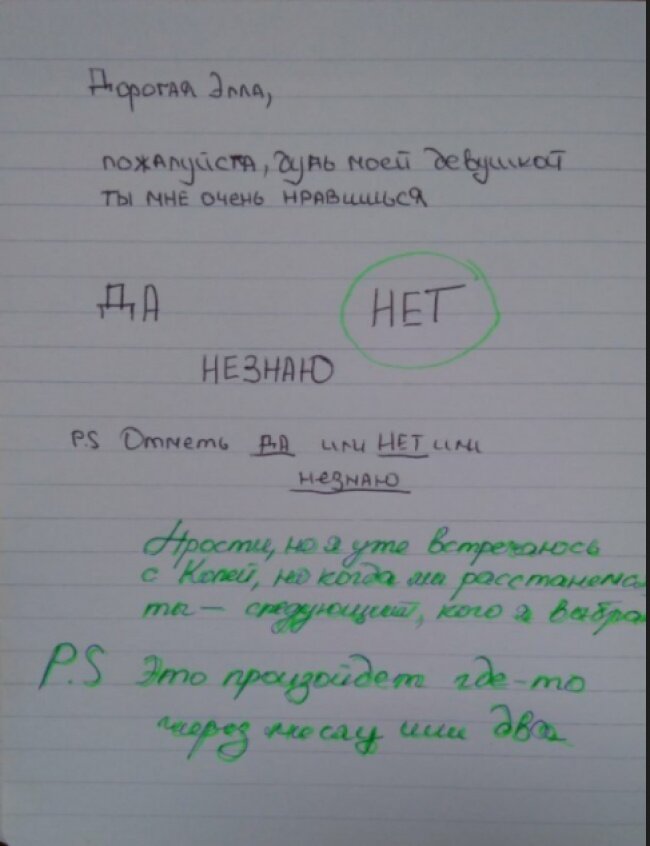 Дорогая Элла,
пожалуйста, будь моей девушкой
ты мне очень нравишься
ДА НЕТ
НЕЗНАЮ
P.S Отметь ДА или НЕТ или
незнаю
Прости, но я уже встречаюсь
с Колей, но когда мы расстанемс
ты — следующий, кого я выбра
P.S Это произойдет где-то
через месяц или два